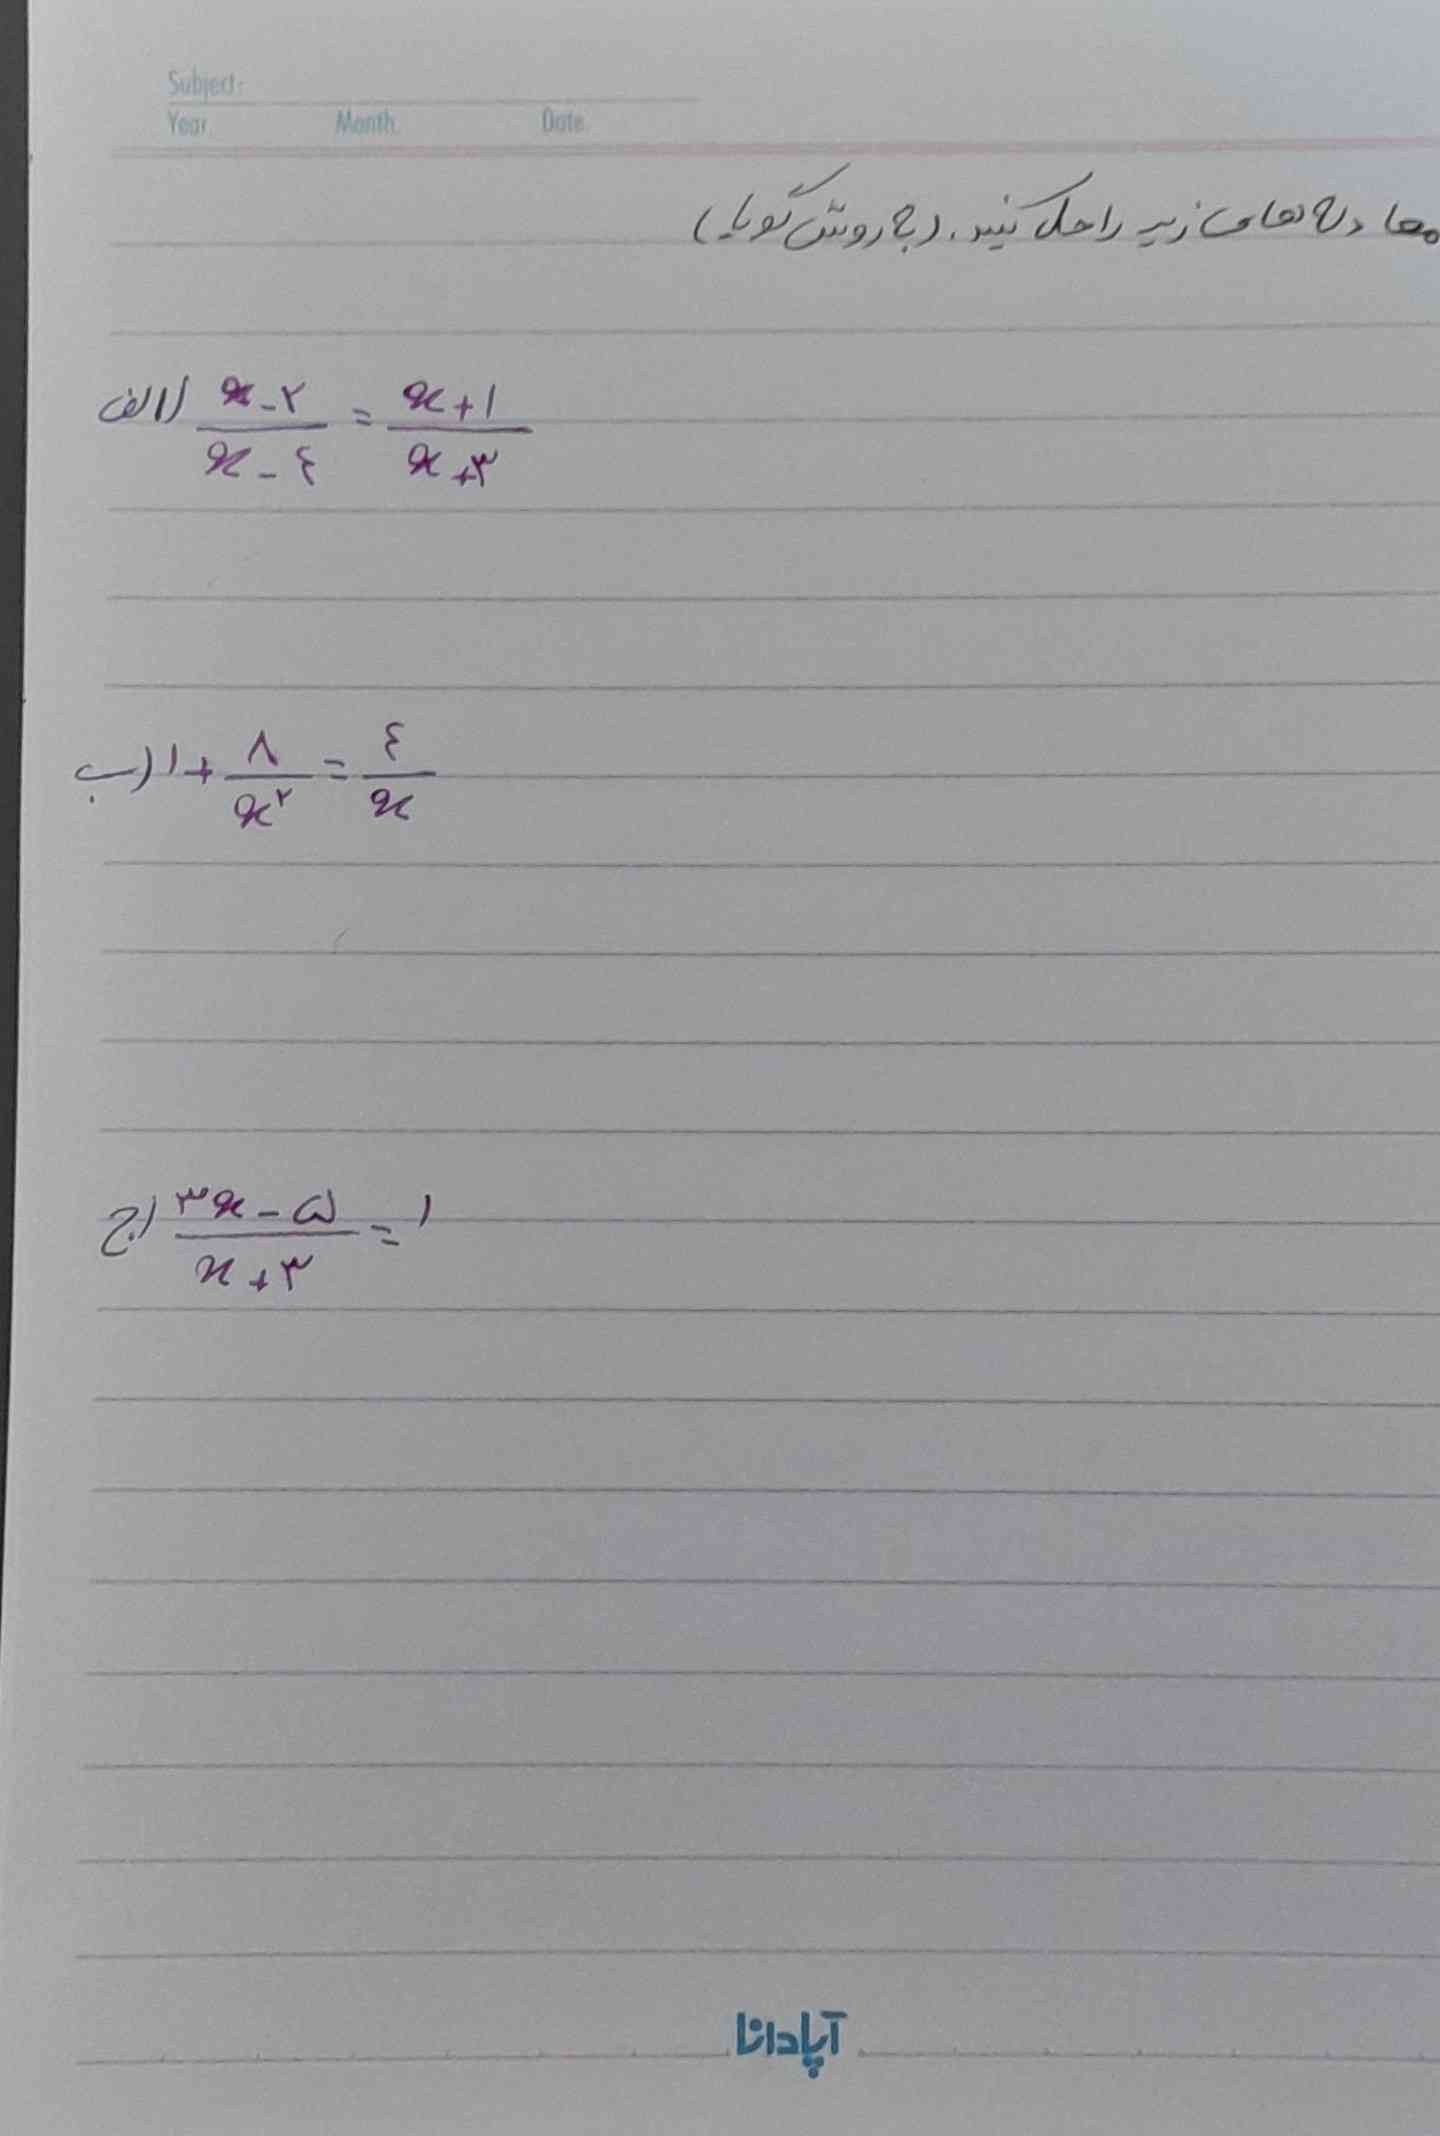 Subject:
Year. Month. Date.
معادله های زیر را حل کنید. (به روش گویا)
الف) x-۲/x-٤ = x+۱/x+۳
ب) ۱+ ۸/x^۲ = ٤/x
ج) ۳x-۵/x+۳ = ۱
آپادانا